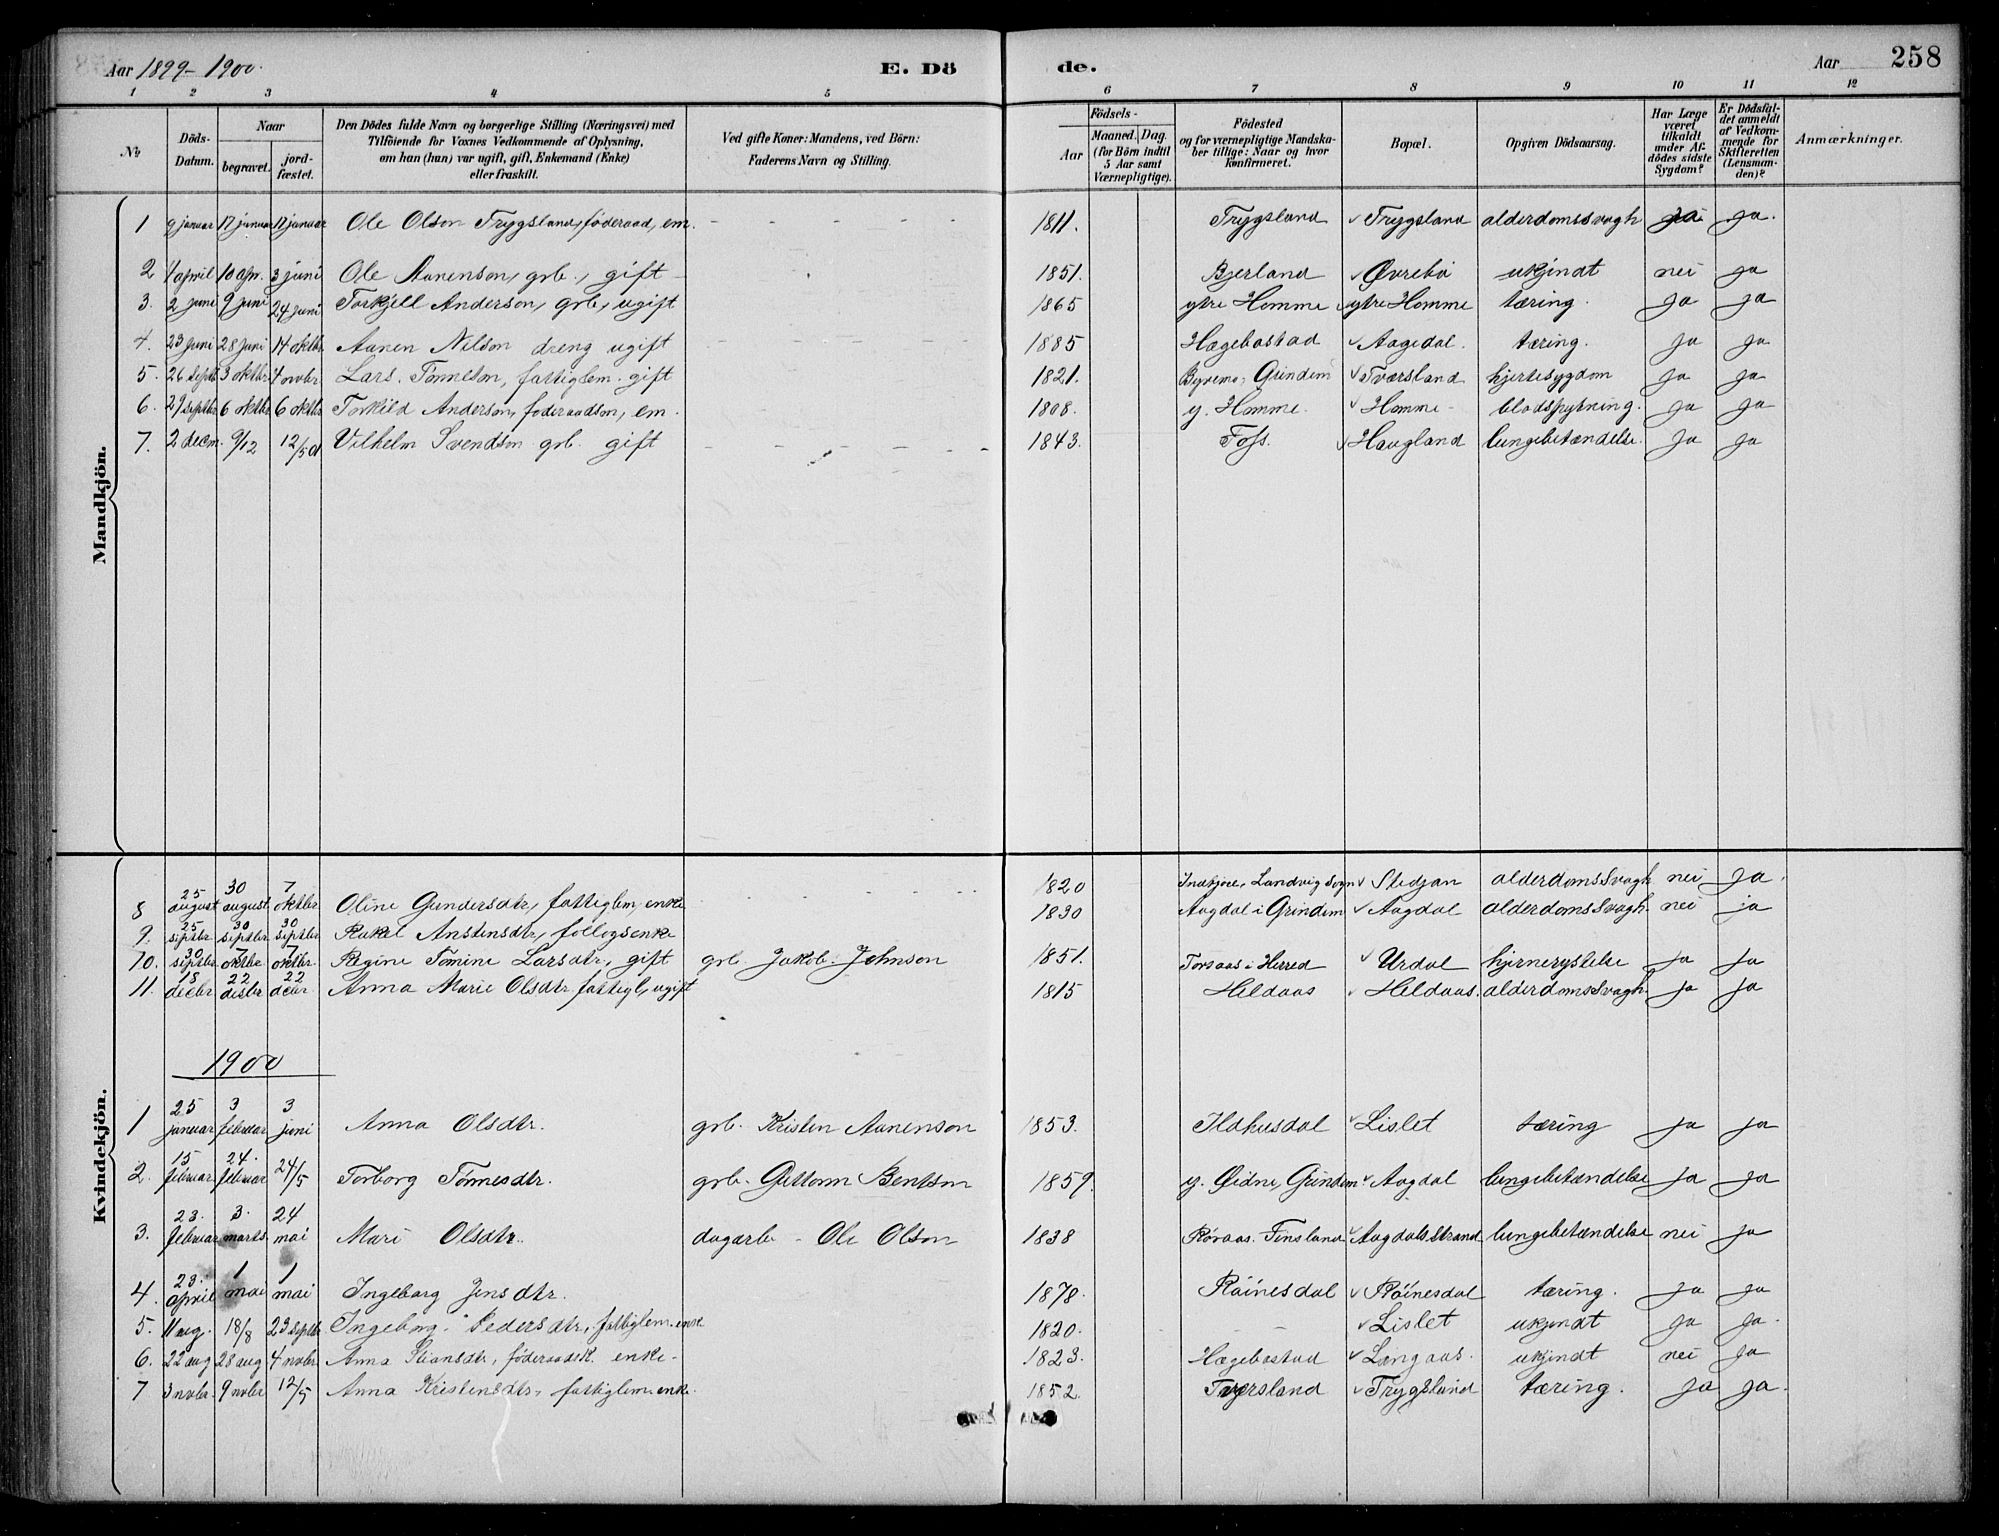 Aar 1899-1900. E. Dö de. Aar 258
1 2 3 4 5 6 7 8 9 10 11 12
No
Döds-Datum.
Naar
begravet.
jord-fæstet.
Den Dödes fulde Navn og borgerlige Stilling (Næringsvei) med
Tilföiende for Voxnes Vedkommende af Oplysning,
om han (hun) var ugift, gift, Enkemand (Enke)
eller fraskilt.
Ved gifte Koner: Mandens, ved Börn:
Faderens Navn og Stilling.
Födsels-
Aar
Maaned. Dag.
(for Börn indtil
5 Aar samt
Værnepligtige).
Födested
og for værnepligtige Mandska-
ber tillige: Naar og hvor
konfirmeret.
Bopæl.
Opgiven Dödsaarsag.
Har Læge
været
tilkaldt
under Af-
dödes sidste
Sygdom?
Er Dödsfal-
det anmeldt
af Vedkom-
mende for
Skifteretten
(Lensman-
den)?
Anmærkninger.
Mandkjön.
1 9 januar 17 januar 17 januar Ole Olson Trygsland, föderaad, em. 1811. Trygsland Trygsland alderdomssvagh ja ja.
2 1 april 10 apr. 3 juni Ole Aanenson, grb., gift 1851. Bjerland Øvrebö ukjindt nei ja
3. 2 juni 9 juni 24 juni Torkjell Anderson, grb, ugift 1865 ytre Homme ytre Homme tæring. ja ja
4. 23 juni 28 juni 14 oktbr Aanen Nilson dreng ugift 1885 Hægebostad Aagedal. tæring. ja ja
5. 26 septb 3 oktbr 4 novbr Lars Tönneson, fattiglem. gift 1821. Byremo, Grindem Tværsland hjertesygdom ja ja
6. 29 septbr 6 oktbr 6 oktbr Torkild Anderson, föderaadson, em. 1808. y. Homme. Homme blodspytning. ja ja
7. 2 decm. 9/12 12/5 01 Vilhelm Svendson grb. gift 1843. Foss. Haugland lungebetændelse. ja ja
Kvindekjön.
8 25 august 30 august 7 oktbr Oline Gundersdtr, fattiglem, enke 1820 Landvig Sogn Stedjan alderdomssvagh nei ja.
9. 25 septbr 30 septbr 30 septbr Rakel Anstensdtr, follogsenke 1830 Aagdal i Grindem Aagdal alderdomssvagh. nei ja
10. 30 septbr 7 oktbr 7 oktbr. Regine Tomine Larsdtr, gift grb. Jakob Johnson 1851. Torsaas i Herred Urdal hjernerystelse ja ja
11. 18 decbr 22 decbr 22 decbr. Anna Marie Olsdtr fattigl, ugift 1815 Hildaas Hildaas. alderdomssvagh. ja ja
1900
1 25 januar 3 februar 3 juni Anna Olsdtr. grb. Kristen Aanenson 1853. Ildhusdal Lislet tæring ja ja
2. 15 februar 24. februar 24/5 Torborg Tönnesdtr. grb. Guttorm Bentson 1859. y. Øidne, Grindem Aagdal lungebetændelse ja ja
3. 23. februar 3. marts 24 mai Mari Olsdtr. dagarb - Ole Olson 1838 Röraas. Finsland Aagdalsstrand lungebetændelse nei ja
4. 23. april 1 mai 1 mai Ingeborg Jensdtr. 1878. Röinesdal Röinesdal tæring. ja ja
5. 11 aug. 18/8 23 septbr Ingeborg Pedersdtr, fattiglem. enke 1820. Lislet ukjendt ja ja.
6. 22 aug 28 aug 4 novbr. Anna Stiansdtr, föderaadsk. enke. 1823. Hægebostad Langaas. ukjindt nei ja
7 3 novbr. 9 novbr 12/5 Anna Kristensdtr, fattiglem. enke. 1852. Tversland Trygsland tæring. ja ja.